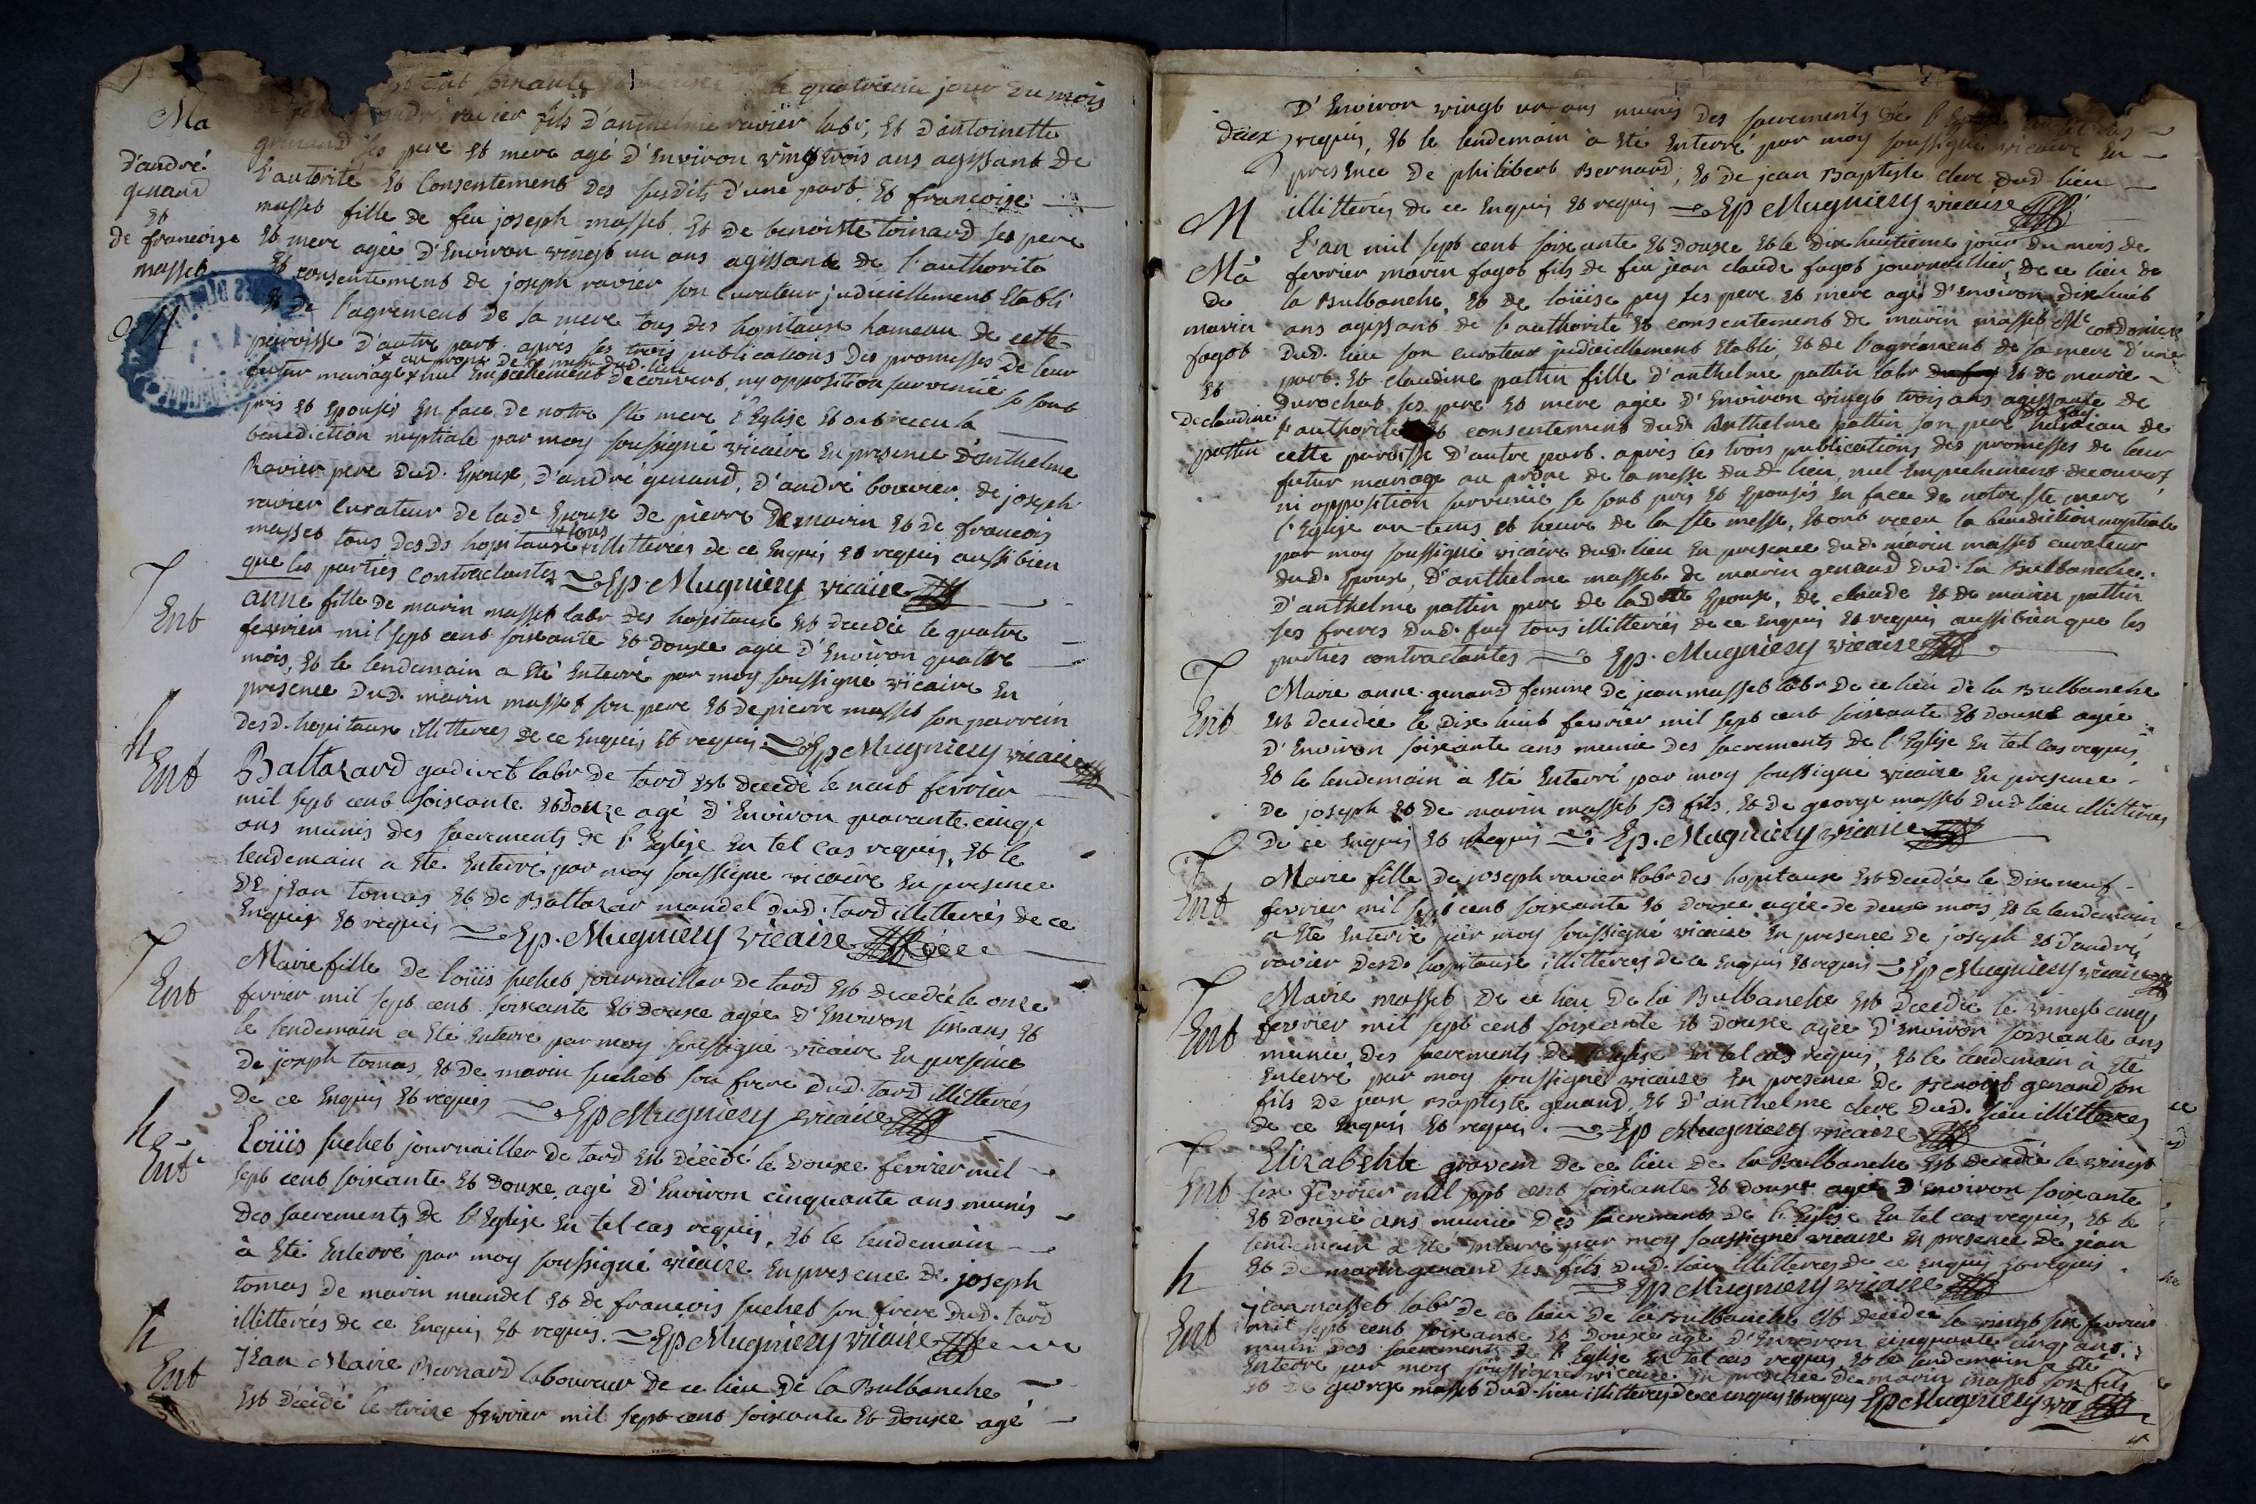 cent soixante le quatrieme jour du mois
Ma
andré ravier fils d'anthelme ravier labr, Et d'antoinette
genand ses pere Et mere agé d'Environ vingt trois ans agissant de
d'andré
genand
Et
de francoise
masset
l'autorité Et Consentement des susdits d'une part. Et francoise
masset fille de feu joseph masset, Et de benoiste toinard ses pere
Et mere agée d'Environ vingt un ans agissante de l'authorité
Et consentement de joseph ravier son curateur judiciellement Etabli
M
Et de l'agrement de sa mere tous des hopitaux hameau de cette
paroisse d'autre part. apres les trois publications des promesses de leur
x au prone de la messe dud. lieu
futur mariage x nul Empechement decouvert, ny opposition survenüe se sont
pris Et Epousés En face de notre Ste mere l'Eglise Et ont receu la
benediction nuptiale par moy soussigné vicaire En presence d'anthelme
Ravier pere dud. Epoux, d'andré genand, d'andré bouvier, de joseph
ravier curateur de lade Epouse de pierre Demarin Et de francois
masset tous desds hopitaux + illitterés de ce Enquis Et requis aussi bien
+ tous
que les parties Contractantes Ep Mugniery vicaire
T
Ent
anne fille de marin masset labr des hopitaux Est decedée le quatre
fevrier mil sept cent soixante Et douxe agée d'Environ quatre
mois, Et le lendemain a Eté Enterré par moy soussigné vicaire En
presence dud. marin masset son pere Et de pierre masset son parrein
desd. hopitaux illitteres de ce Enquis Et requis. Ep Mugniery vicaire
h
Ent
Baltazard godivet labr de tard Est decedé le neuf fevrier
mil sept cent soixante Et douze agé d'Environ quarante cinq
ans munis des sacrements de l'Eglise En tel cas requis, Et le
lendemain a Eté Enterré par moy soussigné vicaire En presence
DE jean tomas Et de Baltazar mandel dud. tard illitterés de ce
Enquis Et requis Ep. Mugniery vicaire
T
Ent
Marie fille de loüis suchet journaillier de tard Est decedée le onze
fevrier mil sept cent soixante Et douxe agée d'Environ six ans Et
le lendemain a Eté Enterré par moy soussigné vicaire En presence
de joseph tomas, Et de marin suchet son frere dud. tard illitterés
de ce Enquis Et requis Ep Mugniery vicaire
h
Ent
Loüis suchet journaillier de tard Est décédé le douxe fevrier mil
sept cent soixante Et douxe, agé d'Environ cinquante ans munis
des sacrements de l'Eglise En tel cas requis, Et le lendemain
à Eté Enterré par moy soussigné vicaire En presence de joseph
tomas de marin mandel Et de francois suchet son frere dud. tard
illitterés de ce Enquis Et requis. Ep Mugniery vicaire
h
Ent
Jean Marie Bernard laboureur de ce lieu De la Bulbanche
Est décédé le treize fevrier mil sept cent soixante Et Douxe agé
D'Environ vingt un ans munis des sacrements de l'Eglise
deux
requis, Et le lendemain a Eté Enterré par moy soussigné vicaire En
presence de philibert Bernard, Et de jean Baptiste clerc dud. lieu
illitterés de ce Enquis Et requis Ep Mugniery vicaire
M
L'an mil sept cent soixante Et douxe Et le dix huitieme jour du mois de
Mã
de
marin
fagot
Et
De claudine
pattin
fevrier marin fagot fils de feu jean claude fagot journaillier de ce lieu de
la Bulbanche, Et de loüise pey ses pere Et mere agé d'Environ dix huit
ans agissant de l'authorité Et consentement de marin masset cordonier
dud. lieu son curateur judiciellement Etabli, Et de l'agrément de sa mere d'une
part. Et claudine pattin fille d'anthelme pattin labr du fay Et de marie
durochat ses pere Et mere agée d'Environ vingt trois ans agissante de
l'authorité Et consentement dud. Anthelme pattin son pere hameau de
du fay.
cette paroisse d'autre part. apres les trois publications des promesses de leur
futur mariage au prône de la messe dud. lieu, nul Empechement decouvert
ni opposition survenüe se sont pris Et Epousés En face de notre Ste mere
l'Eglise au tems Et heure de la Ste messe, Et ont receu la benediction nuptiale
par moy soussigné vicaire dud. lieu En presence dud. marin masset curateur
dud. Epoux, d'anthelme masset. de marin genand dud. la Bulbanche.
d'anthelme pattin pere de ladte Epouse, de claude Et de marin pattin
ses freres dud. fay tous illitterés de ce Enquis Et requis aussi bien que les
parties contractantes Ep. Mugniery vicaire
T
Ent
Marie anne genand femme de jean masset labr De ce lieu de la Bulbanche
Est decedée le dix huit fevrier mil sept cent soixante Et douxe agée
d'Environ soixante ans munie des sacrements de l'Eglise En tel cas requis,
Et le lendemain à Eté Enterré par moy soussigné vicaire En presence
de joseph Et de marin masset ses fils, Et de george masset dud. lieu illitterés
De ce Enquis Et Requis Ep. Mugniery vicaire
T
Ent
Marie fille de joseph ravier labr des hopitaux Est decedée le dix neuf
fevrier mil sept cent soixante Et douxe agée de deux mois Et le lendemain
a Eté Enterré par moy soussigné vicaire En presence de joseph Et d'andré
ravier desd. hopitaux illitteres de ce Enquis Et requis Ep Mugniery vicaire
T
Ent
Marie masset De ce lieu De la Bulbanche Est decedée le vingt cinq
fevrier mil sept cent soixante Et douxe agée d'Environ soixante ans
munie des sacrements de l'Eglise En tel cas requis, Et le lendemain à Eté
Enterré par moy soussigné vicaire En presence de Benoist genand son
fils de jean Baptiste genand, Et d'anthelme clerc dud. lieu illitteres
de ce Enquis Et requis. Ep Mugniery vicaire
T
Ent
Elizabehte gravem de ce lieu de la Bulbanche Est decedée le vingt
six fevrier mil sept cent soixante Et douxe agée d'Environ soixante
Et douxe ans munie des sacrements de l'Eglise En tel cas requis, Et le
lendemain a Eté Enterré par moy soussigné vicaire En presence de jean
Et de marin genand ses fils dud. lieu illitteres de ce Enquis Et requis.
Ep Mugniery vicaire
h
Ent
Jean masset labr de ce lieu de la Bulbanche Est decedé le vingt six fevrier
mil sept cent soixante Et douxe agé d'Environ cinquante cinq ans
muni des sacrements de l'Eglise En tel cas requis Et le lendemain a Eté
Enterré par moy soussigné vicaire En presence de marin masset son fils
Et de george masset dud. lieu illitteres de ce Enquis Et requis Ep Mugniery vic